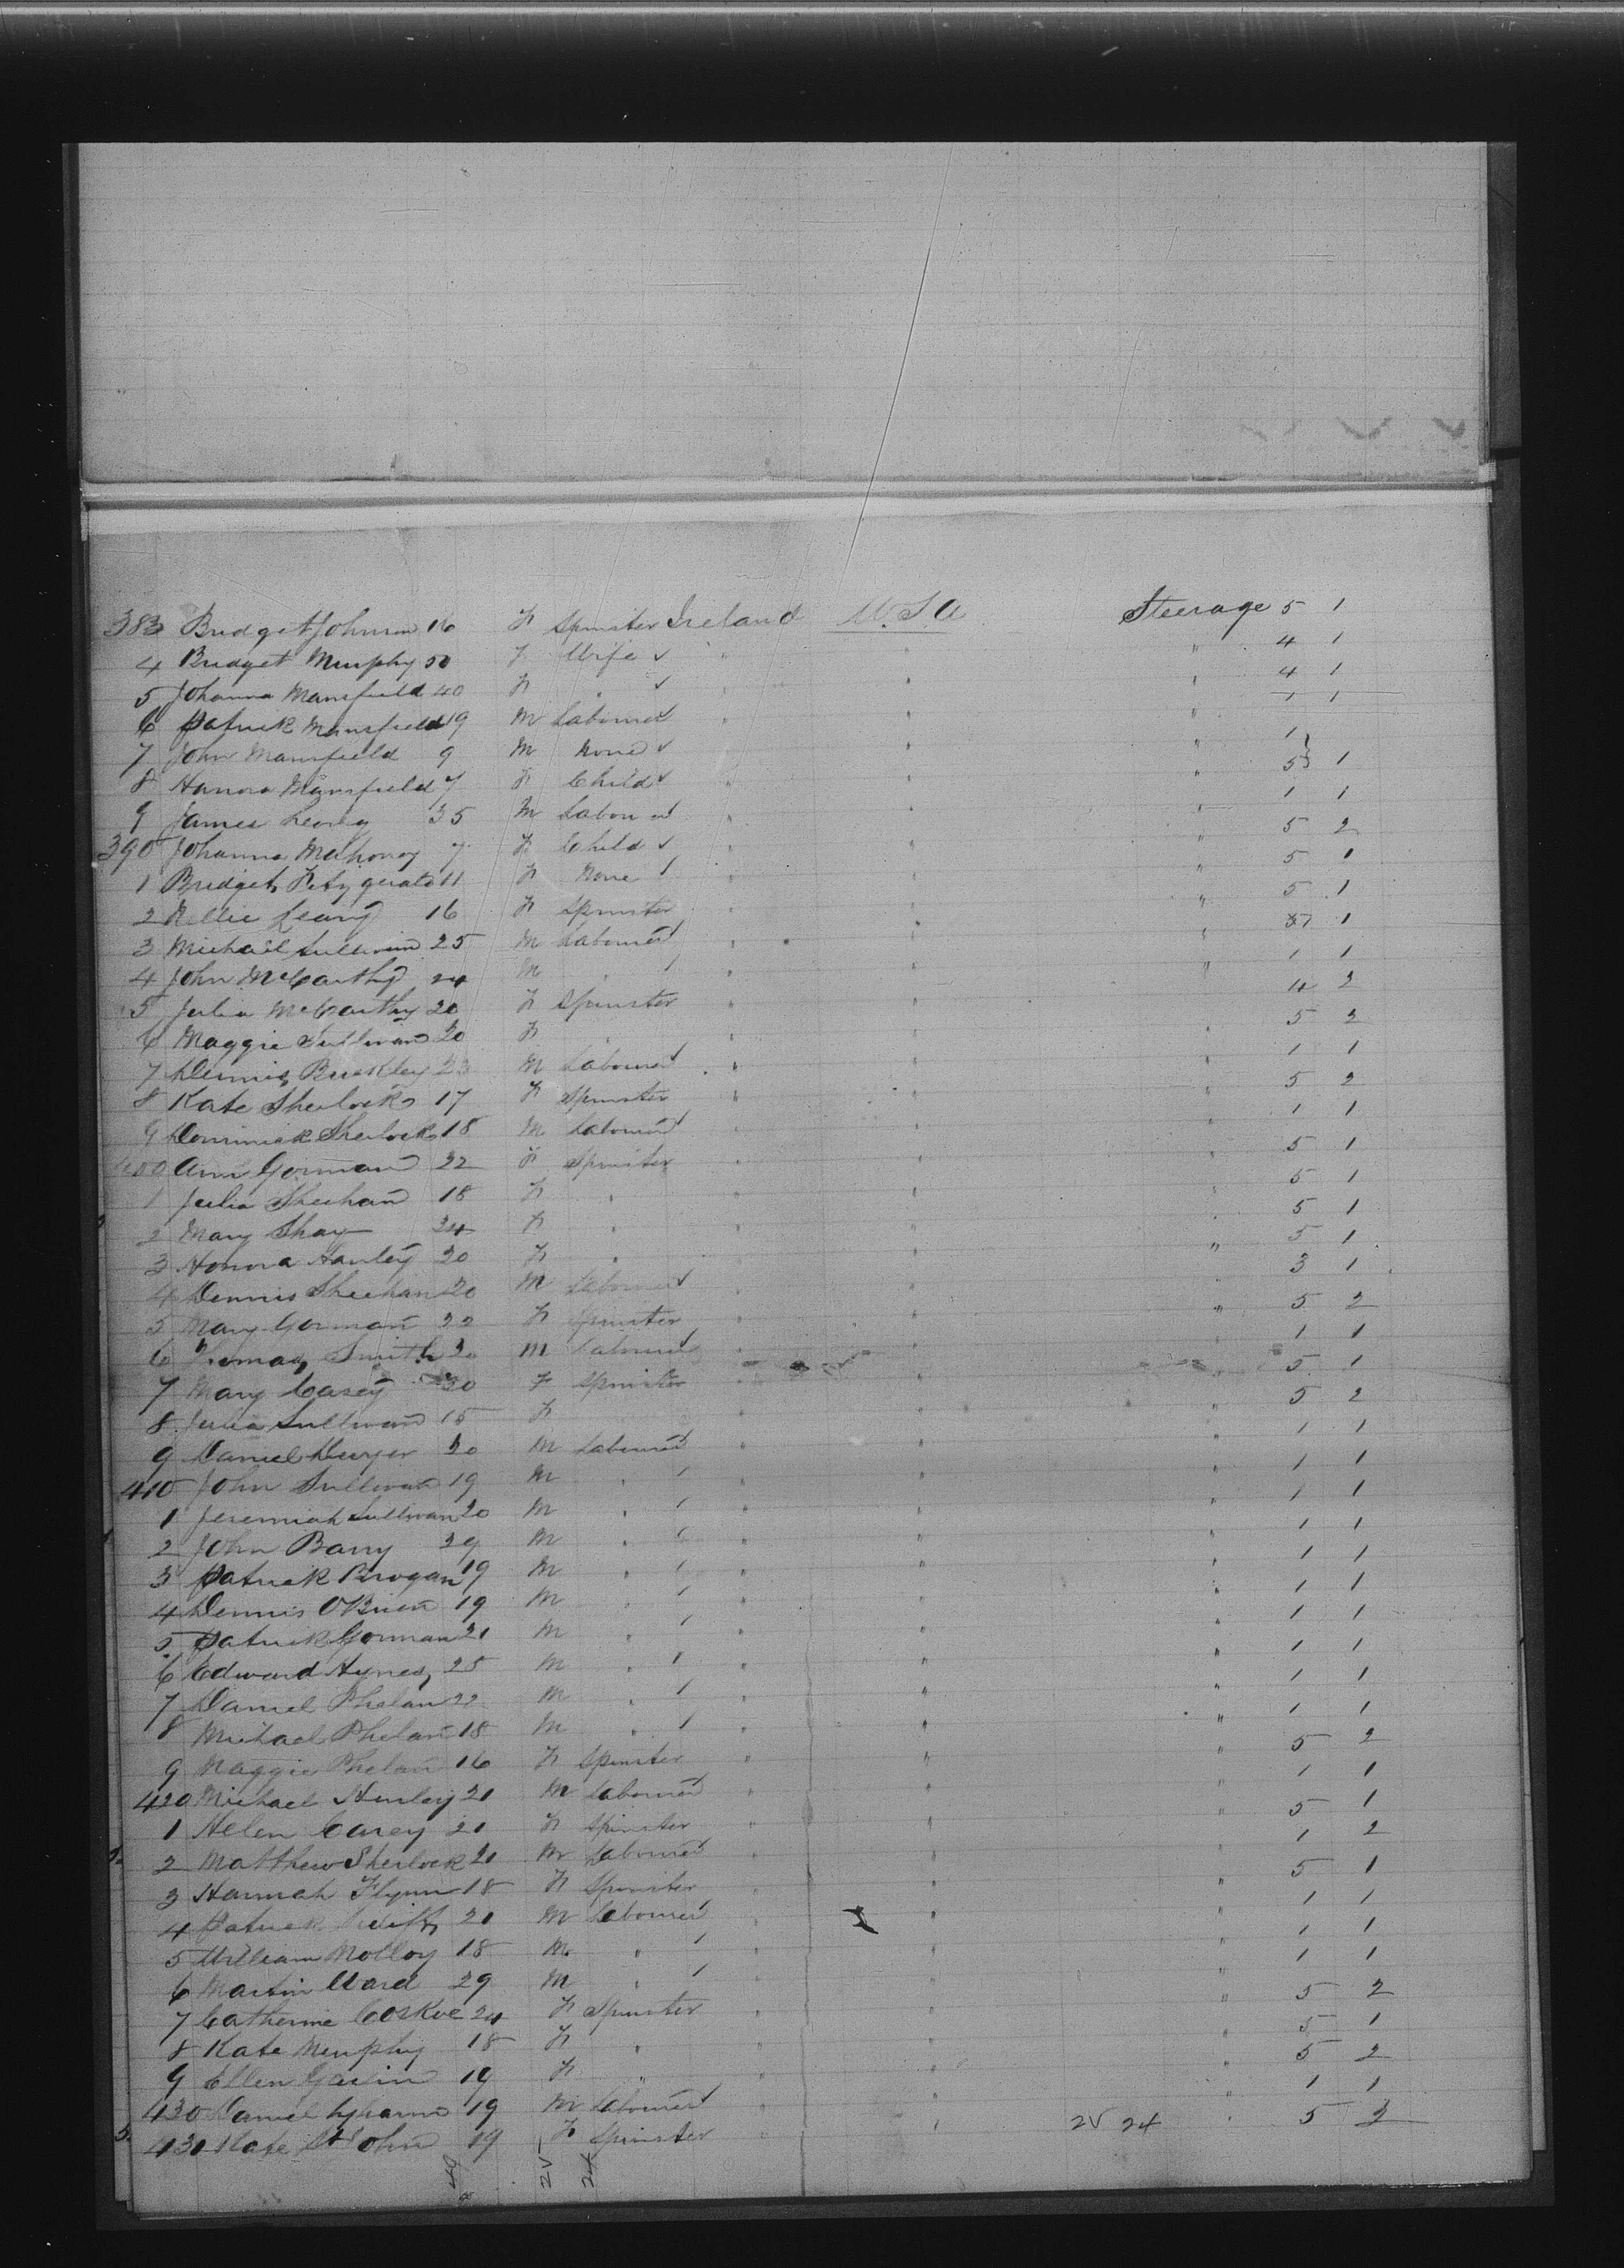 383 Bridget Johnson 16 F Spinster Ireland U.S.A Steerage 5 1
4 Bridget Murphy 50 F Wife " " " 4 1
5 Johanna Mansfield 40 F " " " " 4 1
6 Patrick Mansfield 19 M Labourer " " " 1 1
7 John Mansfield 9 M None " " " 1
8 Hanora Mansfield 7 F Child " " " 5 1
9 James Leary 35 M Labourer " " " 1 1
390 Johanna Mahoney 7 F Child " " " 5 2
1 Bridget Fitzgerald 11 F None " " " 5 1
2 Nellie Leary 16 F Spinster " " " 5 1
3 Michael Sullivan 25 M Labourer " " " 1
4 John McCarthy 24 M " " " " 1 1
5 Julia McCarthy 20 F Spinster " " " 4 2
6 Maggie Sullivan 20 F " " " " 5 2
7 Dennis Buckley 23 M Labourer " " " 1 1
8 Kate Sherlock 17 F Spinster " " " 5 2
9 Dominick Sherlock 18 M Labourer " " " 1 1
400 Ann Gorman 22 F Spinster " " " 5 1
1 Julia Sheehan 18 F " " " " 5 1
2 Mary Shay 24 F " " " " 5 1
3 Honora Hanley 20 F " " " " 5 1
4 Dennis Sheehan 20 M Labourer " " " 3 1
5 Mary Gorman 22 F Spinster " " " 5 2
6 Thomas Smith 20 M Labourer " " " 1 1
7 Mary Casey 20 F Spinster " " " 5 1
8 Julia Sullivan 15 F " " " 5 2
9 Daniel Dwyer 20 M Labourer " " " 1 1
410 John Sullivan 19 M " " " " 1 1
1 Jeremiah Sullivan 20 M " " " " 1 1
2 John Barry 29 M " " " " 1 1
3 Patrick Brogan 19 M " " " " 1 1
4 Dennis OBrien 19 M " " " " 1 1
5 Patrick Gorman 21 M " " " " 1 1
6 Edward Hynes 25 M " " " " 1 1
7 Daniel Phelan 22 M " " " " 1 1
8 Michael Phelan 18 M " " " " 1 1
9 Maggie Phelan 16 F Spinster " " " 5 2
420 Michael Hurley 21 M Labourer " " " 1 1
1 Helen Carey 21 F Spinster " " " 5 1
2 Matthew Sherlock 21 M Labourer " " " 1 2
3 Hannah Flynn 18 F Spinster " " " 5 1
4 Patrick 20 M Labourer " " " 1 1
5 William Molloy 18 M " " " " 1 1
6 Martin Ward 29 M " " " " 1 1
7 Catherine Coskve 24 F Spinster " " " 5 2
8 Kate Murphy 18 F " " " " 5 1
9 Ellen Gavin 19 F " " " " 5 2
430 Daniel 19 M Labourer " " " 1 1
431 Kate St John 19 F Spinster " 2V 24 " 5 2
2V 24